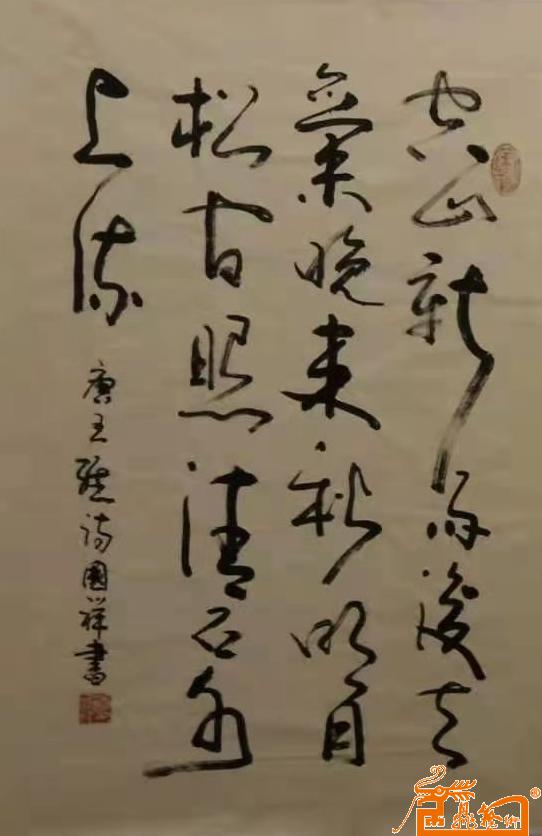 空山新雨後天
氣晚来秋明月
松间照清石泉
上流
唐王維诗國祥書